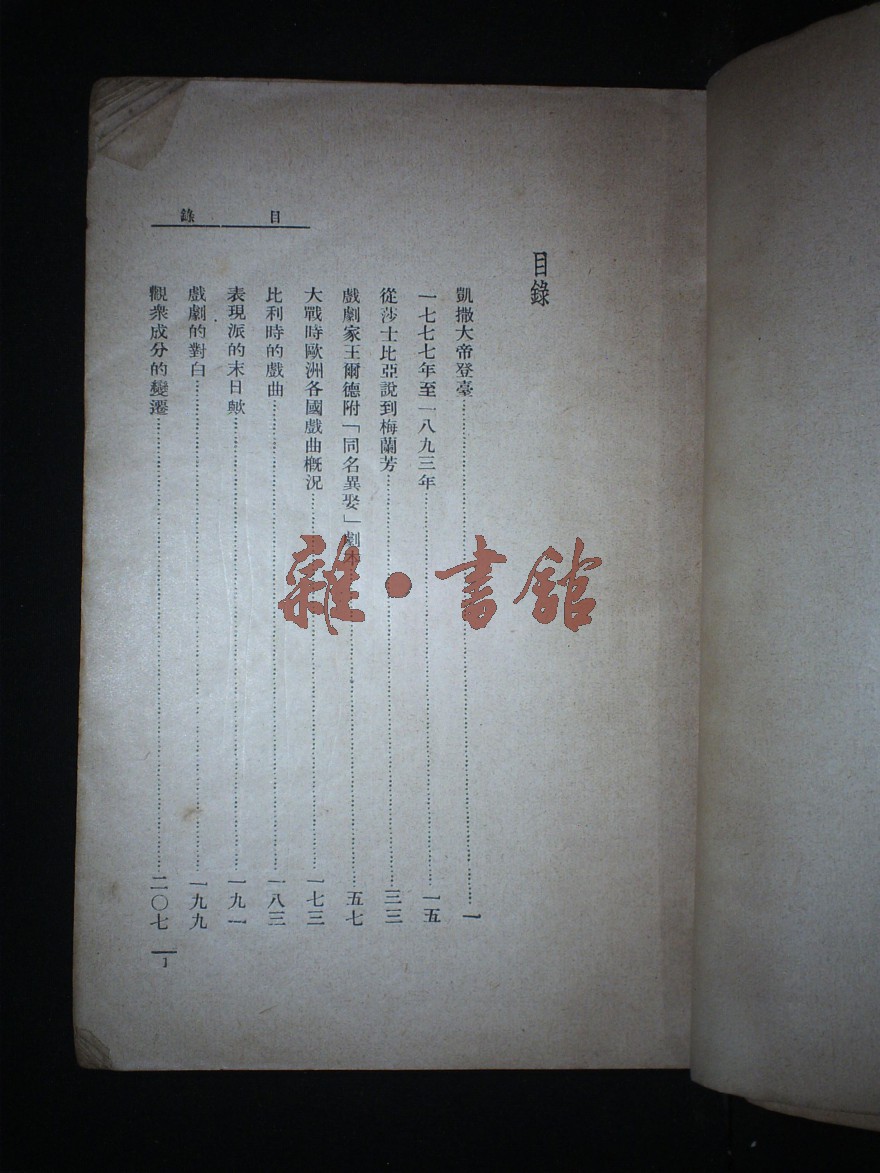 目錄
目錄
凱撒大帝登臺 一
一七七七年至一八九三年 一五
從莎士比亞說到梅蘭芳 三三
戲劇家王爾德附「同名異娶」劇本 五七
大戰時歐洲各國戲曲概況 一七三
比利時的戲曲 一八三
表現派的末日歟 一九一
戲劇的對白 一九九
觀衆成分的變遷 二〇七
1
雜·書館